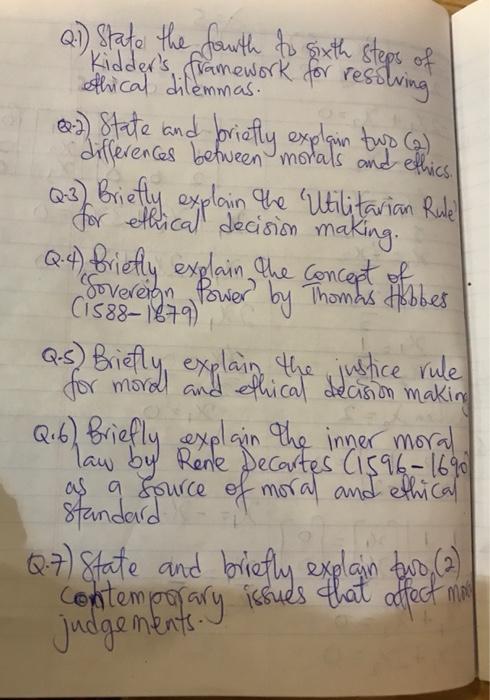 Q.1) State the fourth to sixth steps of
Kidder's framework for resolving
ethical dilemmas.
Q.2) State and briefly explain two (2)
differences between morals and ethics.
Q.3) Briefly explain the 'Utilitarian Rule'
for ethical decision making.
Q.4) Briefly explain the concept of
'Sovereign Power' by Thomas Hobbes
(1588-1679)
Q.5) Briefly explain the justice rule
for moral and ethical decision making
Q.6) Briefly explain the inner moral
law by Rene Decartes (1596-1690
as a source of moral and ethical
standard
Q.7) State and briefly explain two (2)
contemporary issues that affect
judgements.